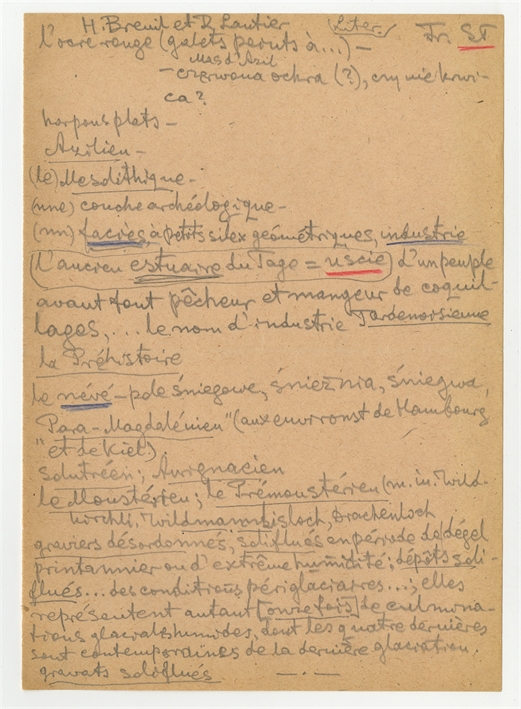 H. Breuil et R. Lantier (Liter.) Fr. ST
l'ocre rouge (galets peints à...) –
Mas d'Azil
– czerwona ochra (?), czy nie krwi-
ca?
harpons plats –
Azilien –
(le) Mésolithique –
(une) couche archéologique –
(un) faciès, à petits silex géométriques, industrie
(l'ancien estuaire du Tage = uscie) d'un peuple
avant tout pêcheur et mangeur de coquil-
lages, ... le nom d'industrie Tardenoisienne
la Préhistoire
le névé – pole śniegowe, śnieżnia, śniegwa,
Para-Magdalénien" (aux environs de Hambourg
"et de Kiel.)
Solutréen; Aurignacien
le Moustérien; le Prémoustérien (m. in. Wild-
kirchli, Wildmannlisloch, Drachenloch
graviers désordonnés, soliflués en période de dégel
printannier ou d'extrême humidité; dépôts soli-
flués... des conditions périglaciaires...; elles
représentent autant [onze fois] de culmina-
tions glacials humides, dont les quatre dernières
sont contemporaines de la dernière glaciation.
gravats soliflués — . —